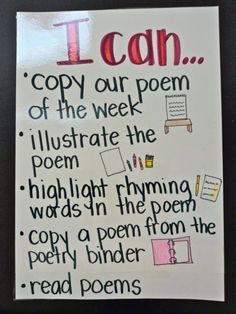 I can...
• copy our poem
of the week
• illustrate the
poem
• highlight rhyming
words in the poem
• copy a poem from the
poetry binder
• read poems